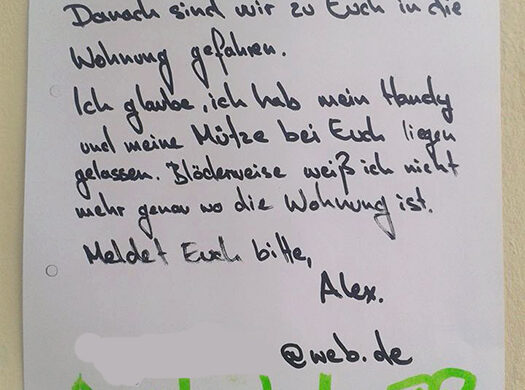 Danach sind wir zu Euch in die
Wohnung gefahren.
Ich glaube, ich hab mein Handy
und meine Mütze bei Euch liegen
gelassen. Blöderweise weiß ich nicht
mehr genau wo die Wohnung ist.
Meldet Euch bitte,
Alex.
@web.de